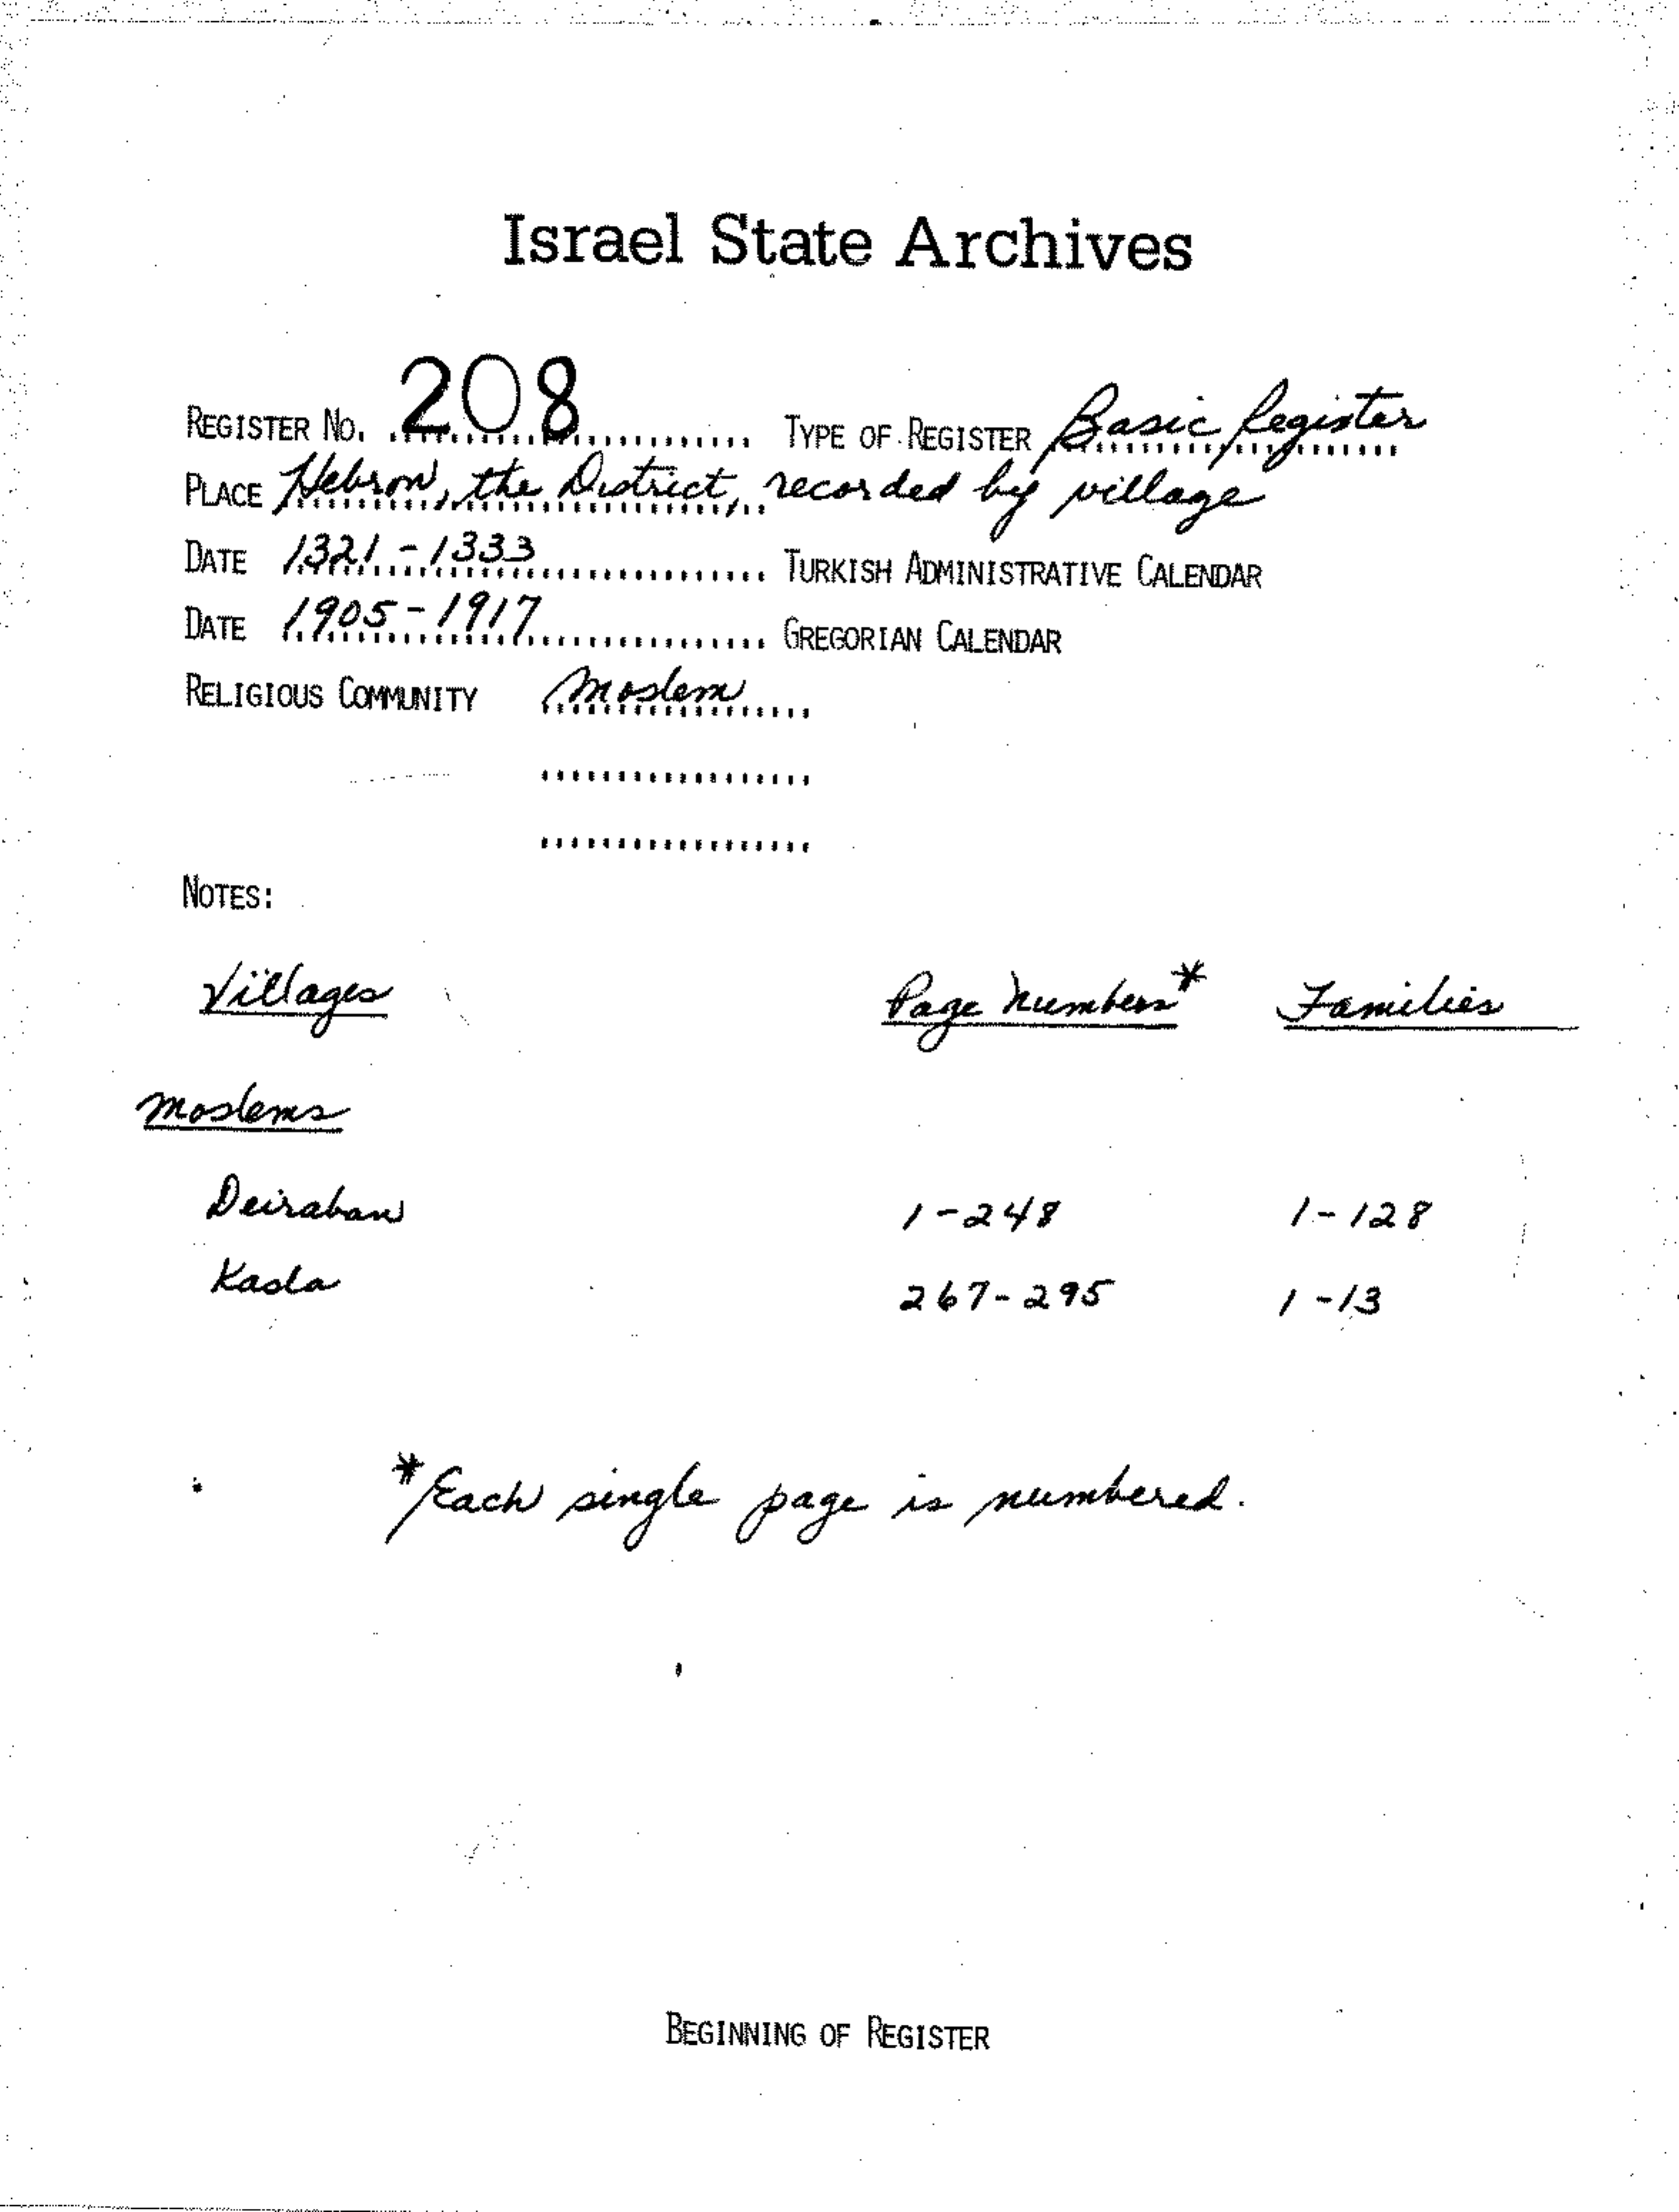 Israel State Archives
REGISTER NO. 208 TYPE OF REGISTER Basic Register
PLACE Hebron, the District, recorded by village
DATE 1321-1333 TURKISH ADMINISTRATIVE CALENDAR
DATE 1905-1917 GREGORIAN CALENDAR
RELIGIOUS COMMUNITY Moslem
NOTES:
Villages Page Numbers* Families
Moslems
Deiraban 1-248 1-128
Kasla 267-295 1-13
*Each single page is numbered.
BEGINNING OF REGISTER